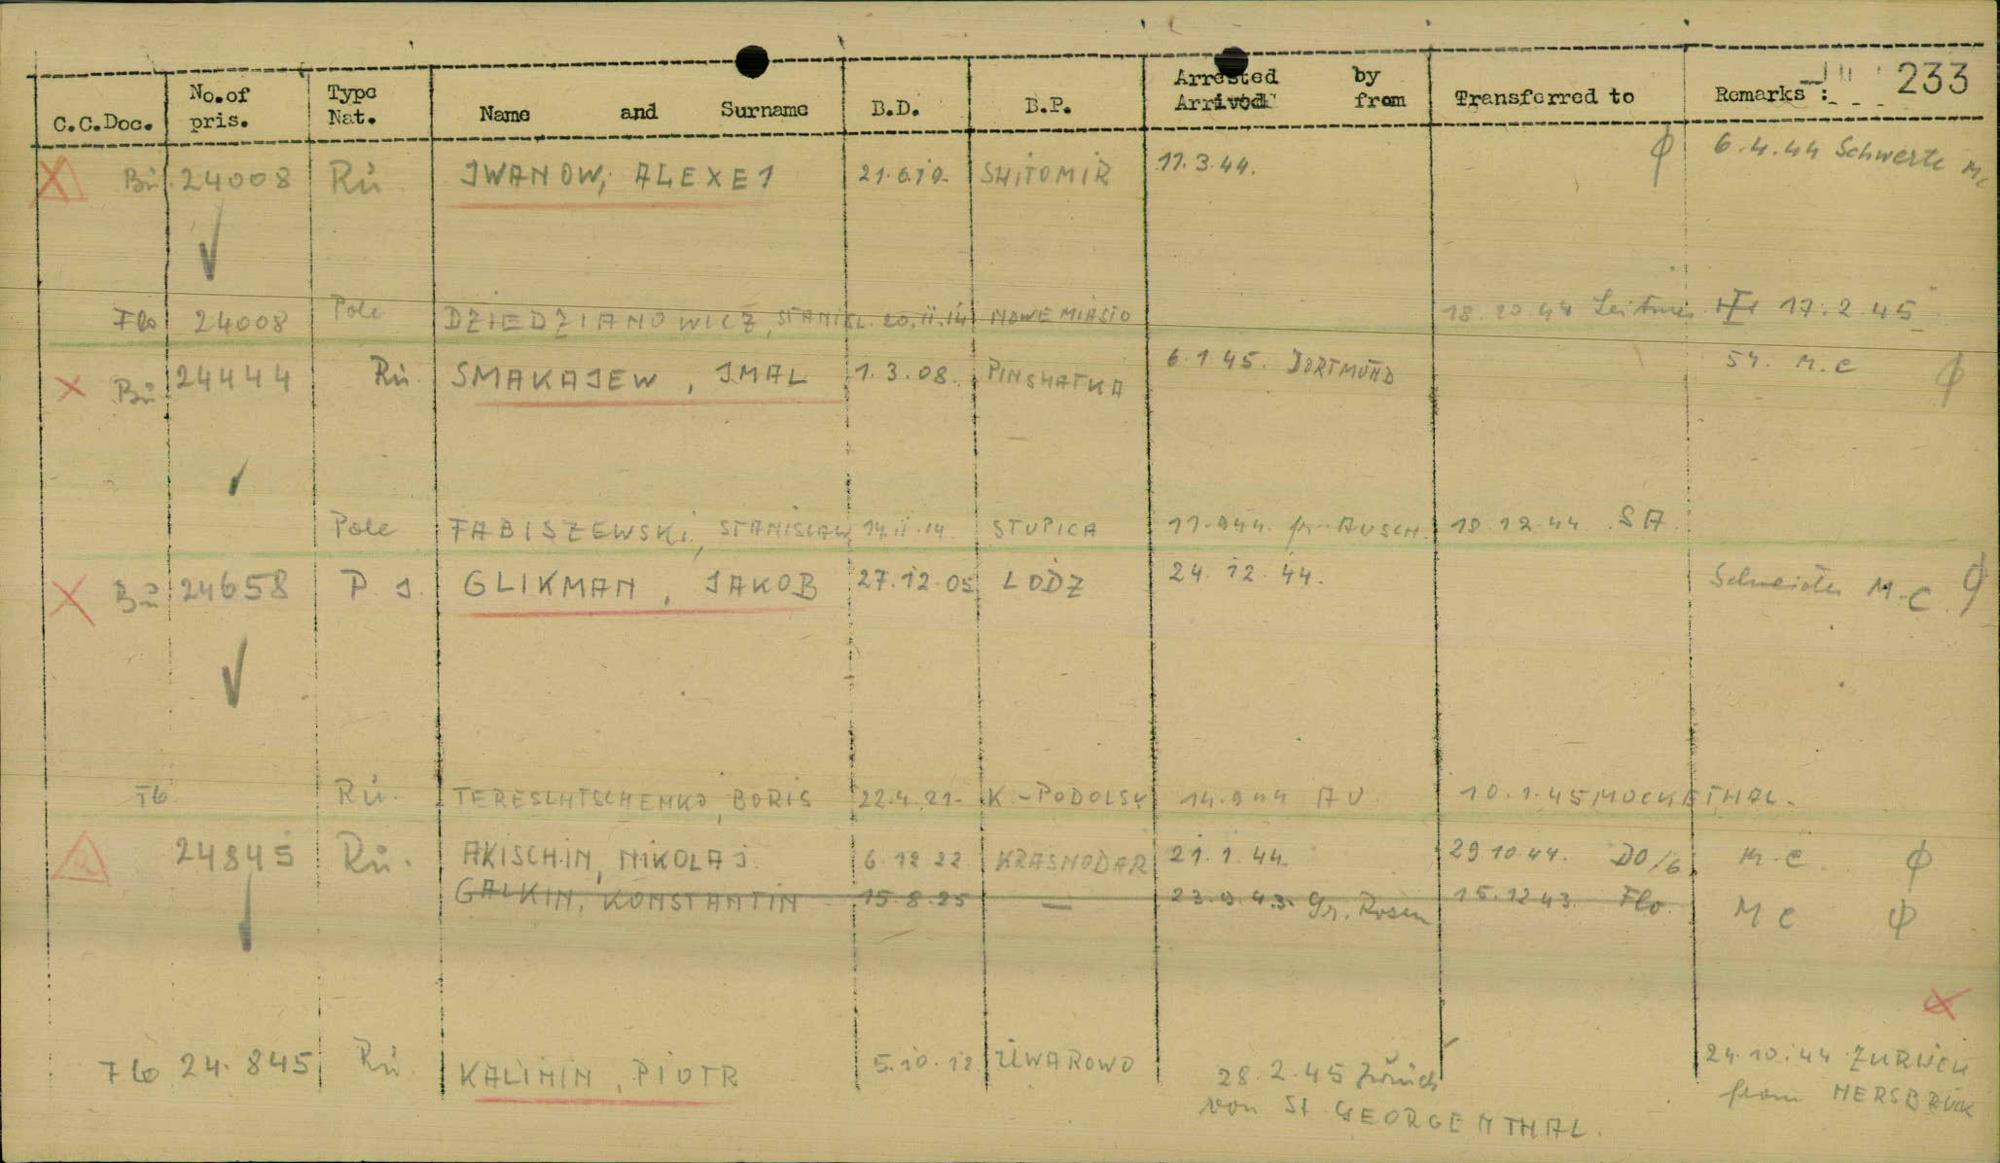 233
C.C.Doc. No.of pris. Type Nat. Name and Surname B.D. B.P. Arrested by Arrived from Transferred to Remarks :
Bu. 24008 Ru. JWANOW, ALEXEI 21.6.19. SHITOMIR 17.3.44. 6.4.44 Schwerte
Flo 24008 Pole DZIEDZIANOWICZ, STANISL. 20.11.14 NOWE MIASTO 18.10.44 Leitmer. 17.2.45
Bu 24444 Ru. SMAKAJEW, JMAL 1.3.08. PINSHATKA 6.1.45. DORTMUND M.C
Pole FABISZEWSKI, STANISLAW 14.11.14 STUPICA 11.9.44. fr. AUSCH. 18.12.44 SA.
Bu 24658 P. J. GLIKMAN, JAKOB 27.12.05 LODZ 24.12.44. Schneider M.C.
Ru. TERESCHTSCHENKO, BORIS 22.4.21. K.-PODOLSK 14.9.44 AU 10.1.45 MOCKETHAL.
24845 Ru. AKISCHIN, NIKOLAJ. 6.12.22 KRASNODAR 21.1.44. 29.10.44. DO/6 M.C
GALKIN, KONSTANTIN 15.8.25 — 23.9.43. Gr. Rosen 15.12.43. Flo. M C
Flo 24.845 Ru KALININ, PIOTR 5.10.12 UWAROWO 28.2.45 Zurück 24.10.44 ZURUCK
von St GEORGENTHAL. from HERSBRUCK